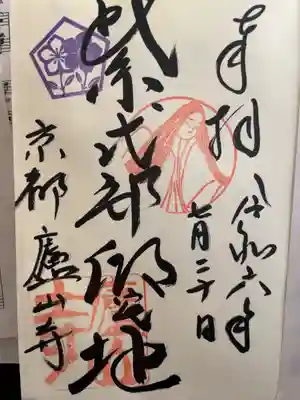 奉拝
令和六年
七月二十日
紫式部邸宅地
京都 廬山寺